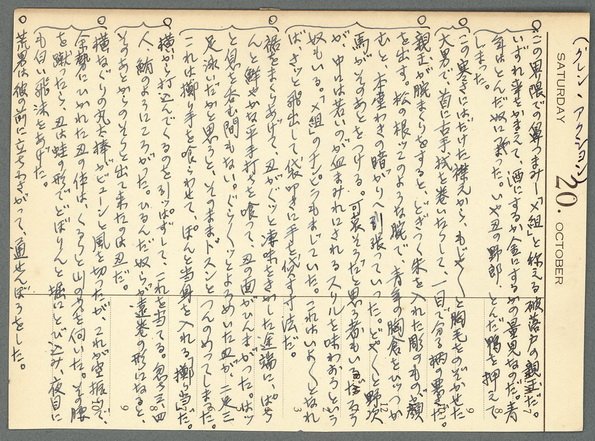 (クレン・アクション)
SATURDAY 20. OCTOBER
この界隈での鼻つまみ〆組と称える破落戸の親玉だ。
いずれ半をかまえて、酒にするか金にするかの量見なんだ。青
年はとんだ奴に来た。いや丑の野郎、とんだ鴨を押えて
しまった。
この寒さにはだけた襟元から、もじゃ〱と胸毛をのぞかせた
大男で、首に古手拭を巻いたりして、一目で分る柄の悪さだ。
親玉が腕まくりをすると、どぎつく朱を入れた彫ものが顔
を出す。松の根ッこのような腕で、青年の胸倉をひっつか
むと、本重わきの暗がりへ引張っていった。どや〱と野次
馬がそのあとをつける。可哀そうだと思う者もいるだろう
が、中には若いのが血まみれにされるスリルを味わおうという
奴もいる。〆組のチンピラもまじっていた。これはいよ〱となれ
ば、さッと飛出して袋叩きに手を貸す寸法だ。
裾をまくりあげて、丑がぐいと凄味をきかした途端に、ぱち
んと鮮やかな平手打ちを喰って、丑の面がひんまがった。はッ
と息を呑む間もない。ぐら〱ッとよろめいた丑が二足三
足泳いだかと思うと、そのままドスンとつんのめってしまった。
これは擲り手を喰らわせて、ぽんと当身を入れる擲り当だ。
横から打込んでくるのを引ッぱずして、これを当てる。忽ち三、四
人、鮪のようにころがった。ひるんだ奴らが遠巻の形になると、
そのあとからのそりと出て来たのは丑だ。
横なぐりの丸太棒がビューンと風を切ったが、それが空振りで、
余勢にひかれた丑の体は、くるりと山のあを向いた。その腰
を蹴ったら、丑は蛙の形でどぼりんと堀にとび込み、夜目に
も白い飛沫をあげた。
若男は彼の前に立ちふさがって、通せんぼうをした。